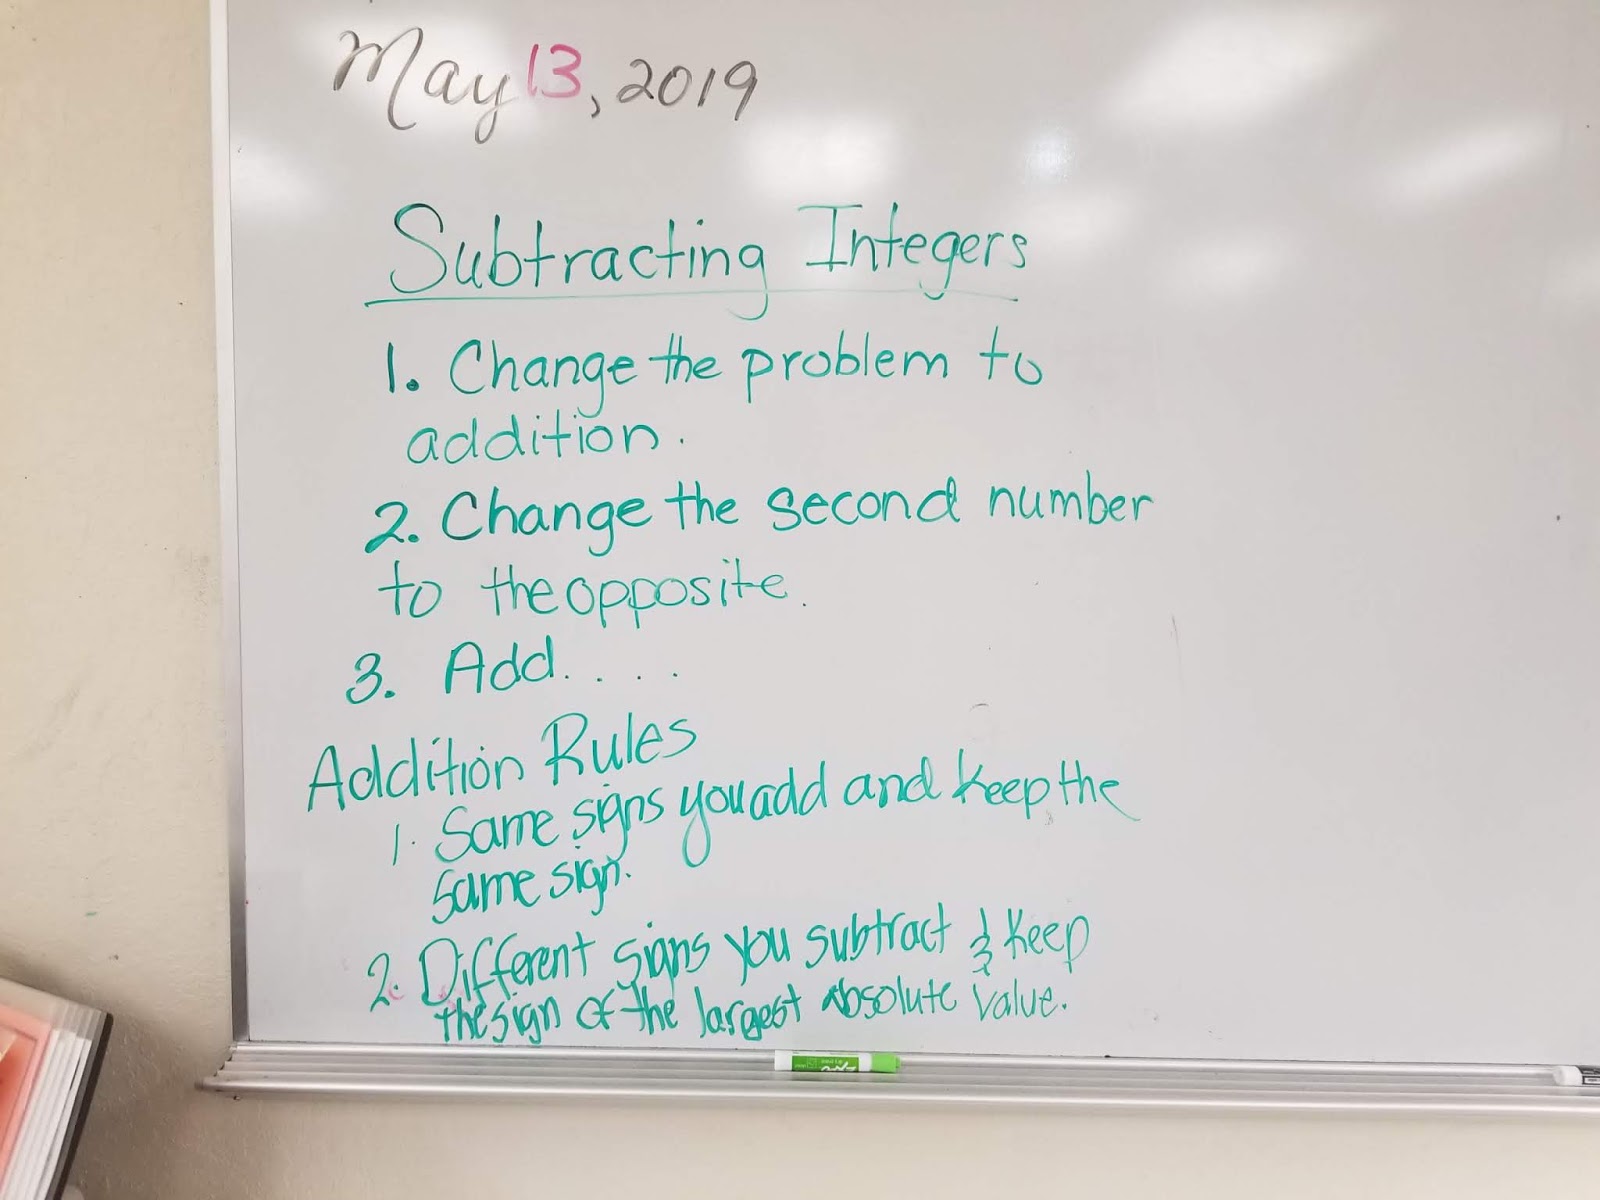 May 13, 2019
Subtracting Integers
1. Change the problem to
addition.
2. Change the second number
to the opposite.
3. Add. . . .
Addition Rules
1. Same signs you add and keep the
same sign.
2. Different signs you subtract & keep
the sign of the largest absolute value.